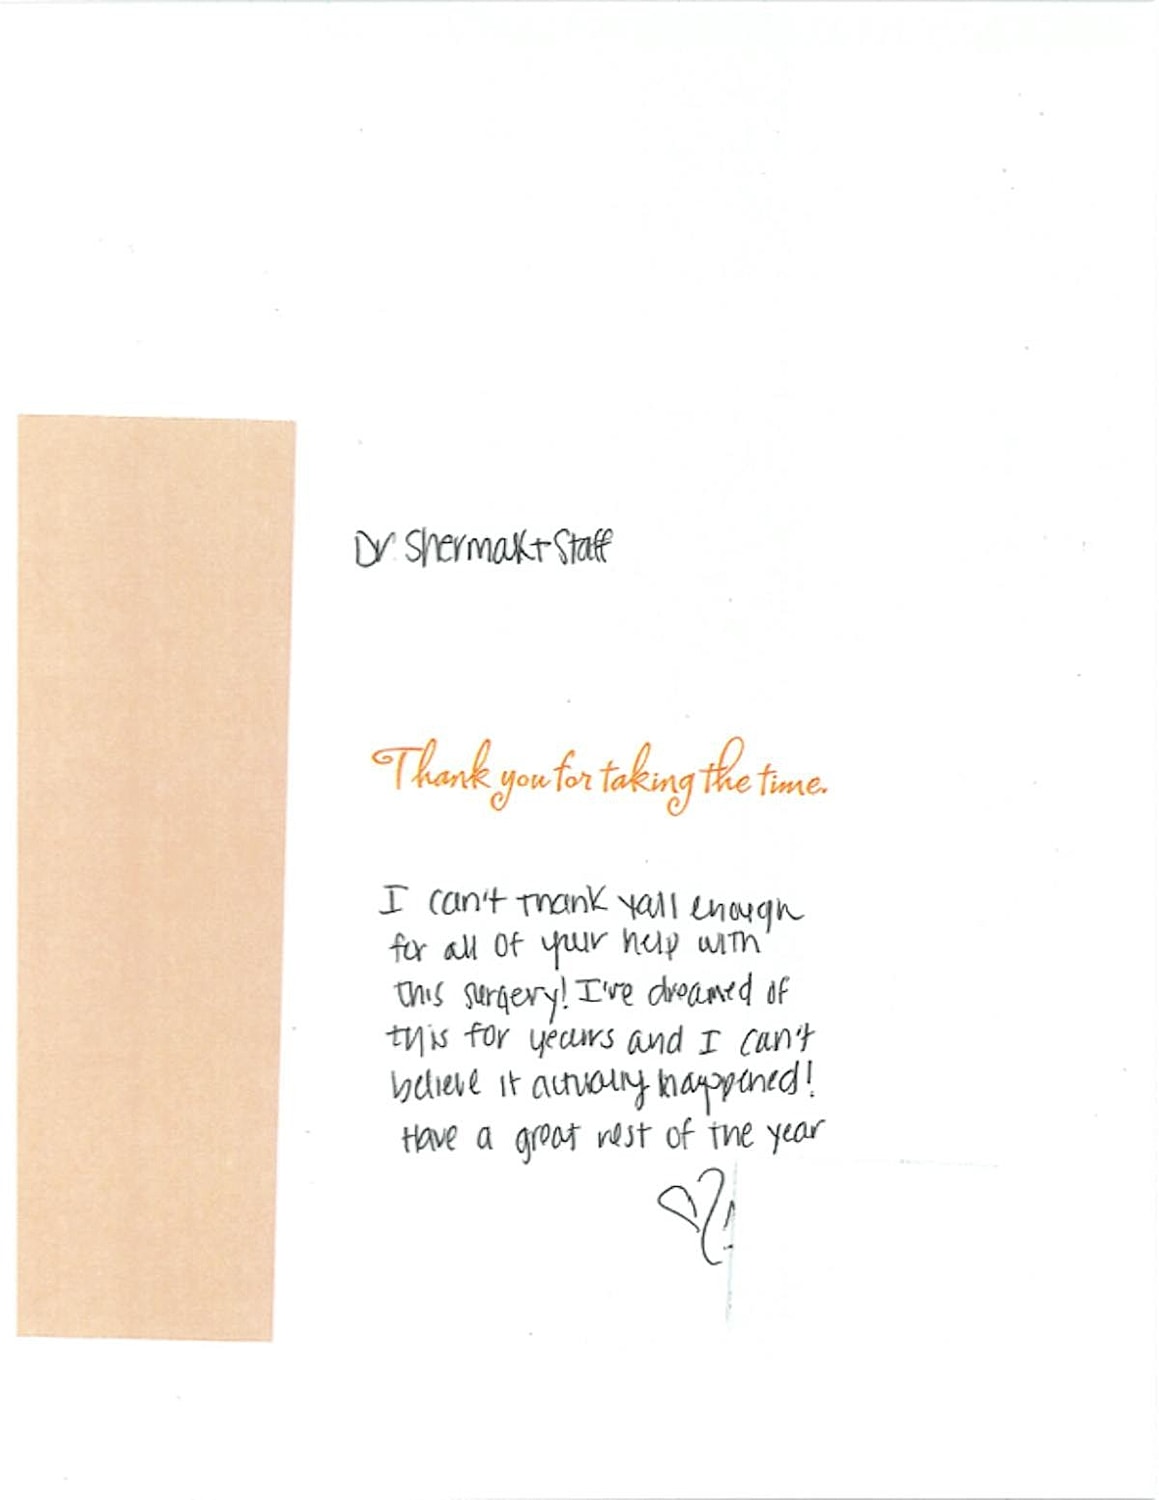 Dr. Shermak + Staff
Thank you for taking the time.
I can't thank yall enough
for all of your help with
this surgery! I've dreamed of
this for years and I can't
believe it actually happened!
Have a great rest of the year